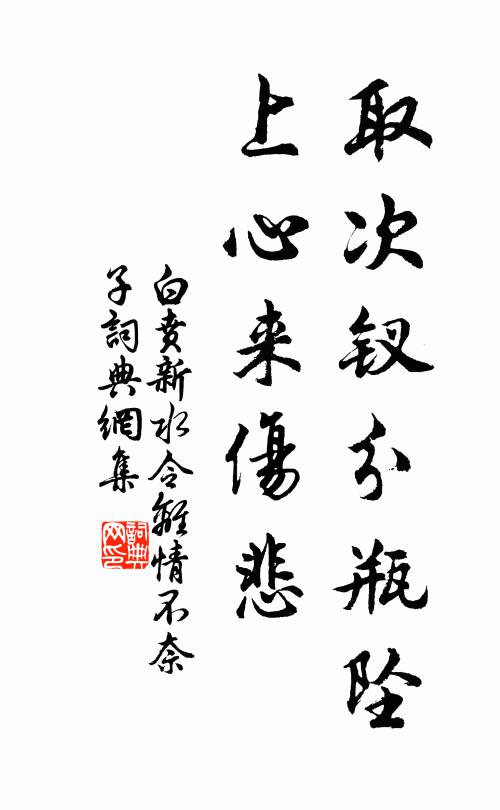 取次钗分瓶坠
上心来傷悲
白贲新水令離情不奈
子詞典網集
詞典网印